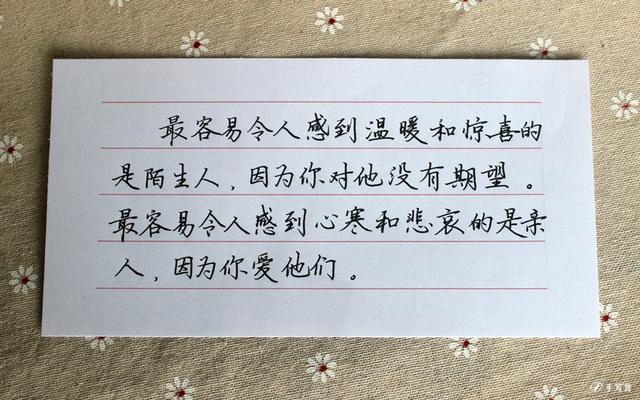 最容易令人感到温暖和惊喜的
是陌生人，因为你对他没有期望。
最容易令人感到心寒和悲哀的是亲
人，因为你爱他们。